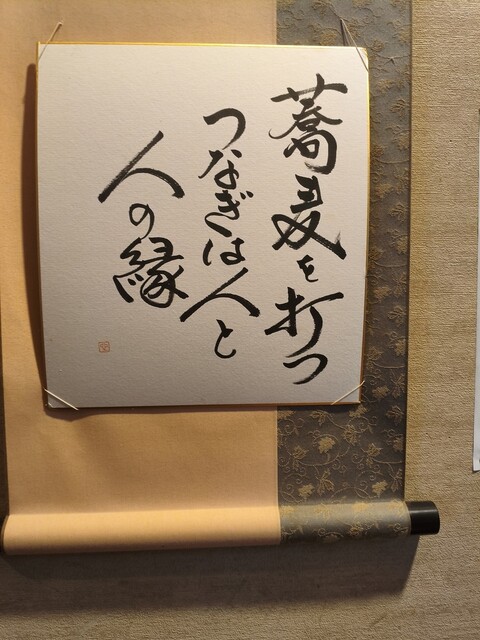 蕎麦を打つ
つなぎは人と
人の縁